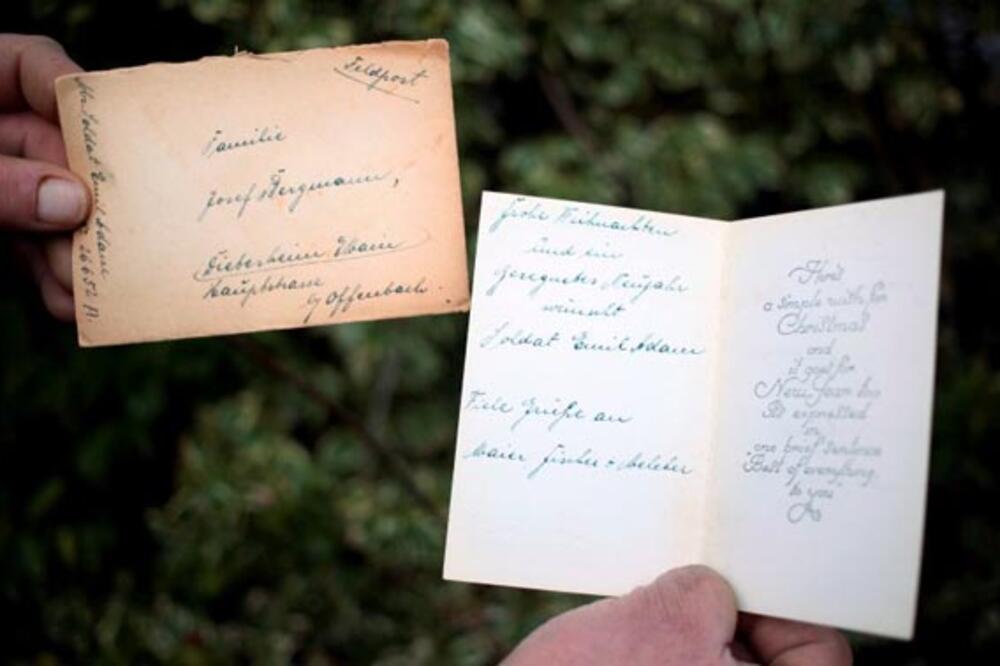 Feldpost
Familie
Josef Bergmann,
Biebesheim Main
Hauptstrasse
b/ Offenbach.
Soldat Emil Adam
26652 A.
Frohe Weihnachten
und ein
gesegnetes Neujahr
wünscht
Soldat Emil Adam
Viele Grüße an
Maier Fischer
Here's
a simple wish for
Christmas
and
it goes for
New Year too
It's expressed
in
one brief sentence
"Best of everything
to you"